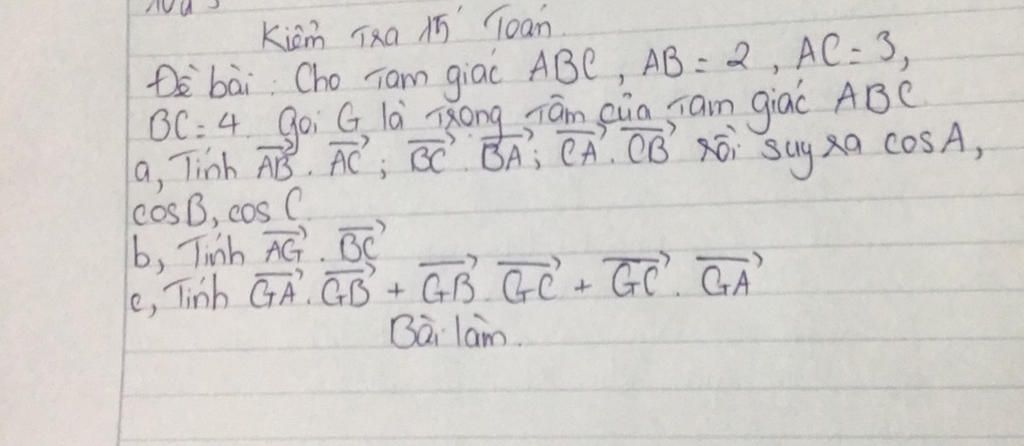 Kiểm Tra 15' Toán
Đề bài: Cho Tam giác ABC, AB = 2, AC = 3,
BC = 4. gọi G là Trọng Tâm của Tam giác ABC
a, Tính AB⃗ . AC⃗ ; BC⃗ . BA⃗ ; CA⃗ . CB⃗ rồi suy ra cosA,
cosB, cos C.
b, Tính AG⃗ . BC⃗
c, Tính GA⃗ . GB⃗ + GB⃗ . GC⃗ + GC⃗ . GA⃗
Bài làm.